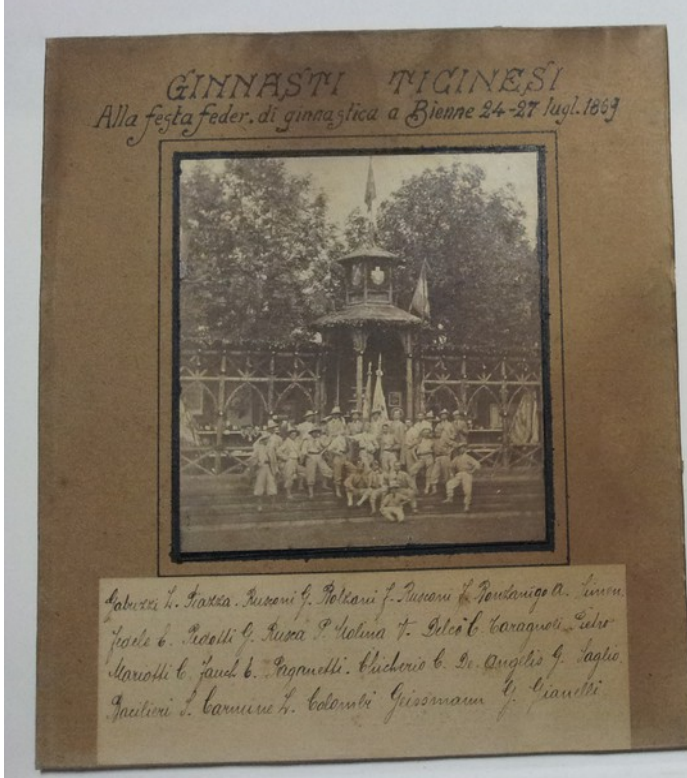 GINNASTI TICINESI
Alla festa feder. di ginnastica a Bienne 24-27 lugl. 1869
Gabuzzi L. Piazza. Rusconi G. Bolzani f. Rusconi Bonzanigo A. Simen
fedele C. Pedotti G. Rusca P. Molina V. Delcò C. Taragnoli Pietro
Mariotti C. Jauch E. Paganetti. Chicherio C. De Angelis G. Saglio
Bacilieri S. Carmine L. Colombi Geissmann G. Gianelli